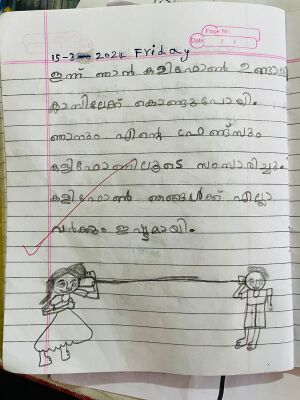 Page No.
Date: / /
15-3-2024 Friday
ഇന്ന് ഞാൻ കളിഫോൺ ഉണ്ടാക്കി
ക്ലാസിലേക്ക് കൊണ്ടുപോയി.
ഞാനും എന്റെ ഫ്രണ്ട്സും
കളിഫോണിലൂടെ സംസാരിച്ചു.
കളിഫോൺ ഞങ്ങൾക്ക് എല്ലാ
വർക്കും ഇഷ്ടമായി.